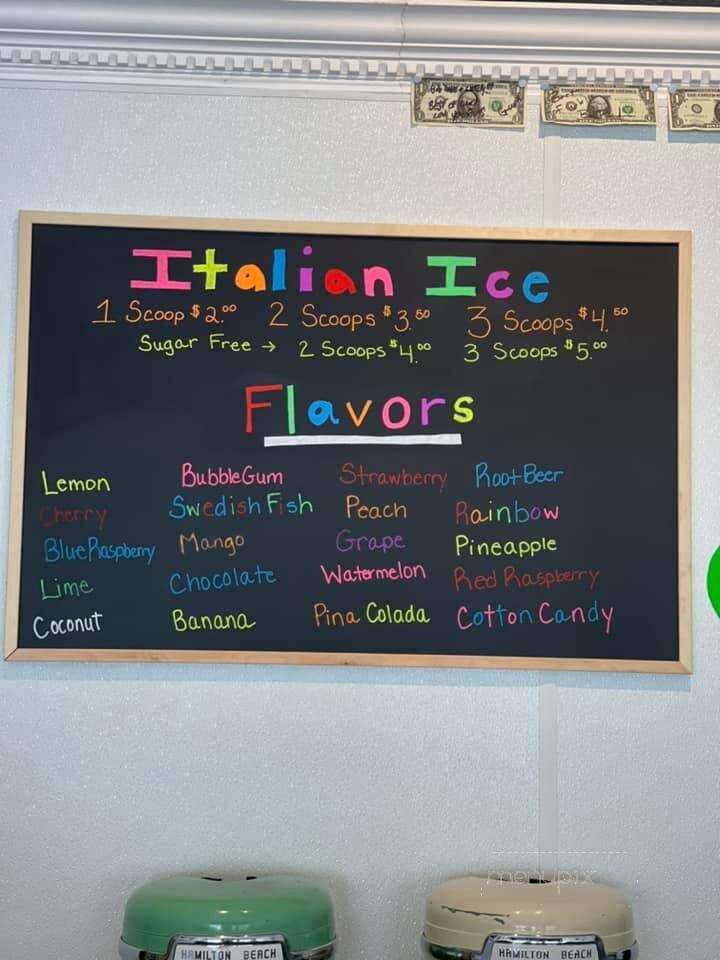 Italian Ice
1 Scoop $2.00 2 Scoops $3.50 3 Scoops $4.50
Sugar Free → 2 Scoops $4.00 3 Scoops $5.00
Flavors
Lemon BubbleGum Strawberry Root Beer
Cherry Swedish Fish Peach Rainbow
Blue Raspberry Mango Grape Pineapple
Lime Chocolate Watermelon Red Raspberry
Coconut Banana Pina Colada Cotton Candy
menupix
HAMILTON BEACH HAMILTON BEACH